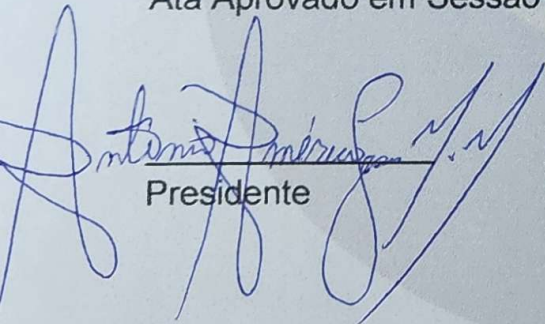 Ata Aprovado em Sessão
Antonio Américo
Presidente